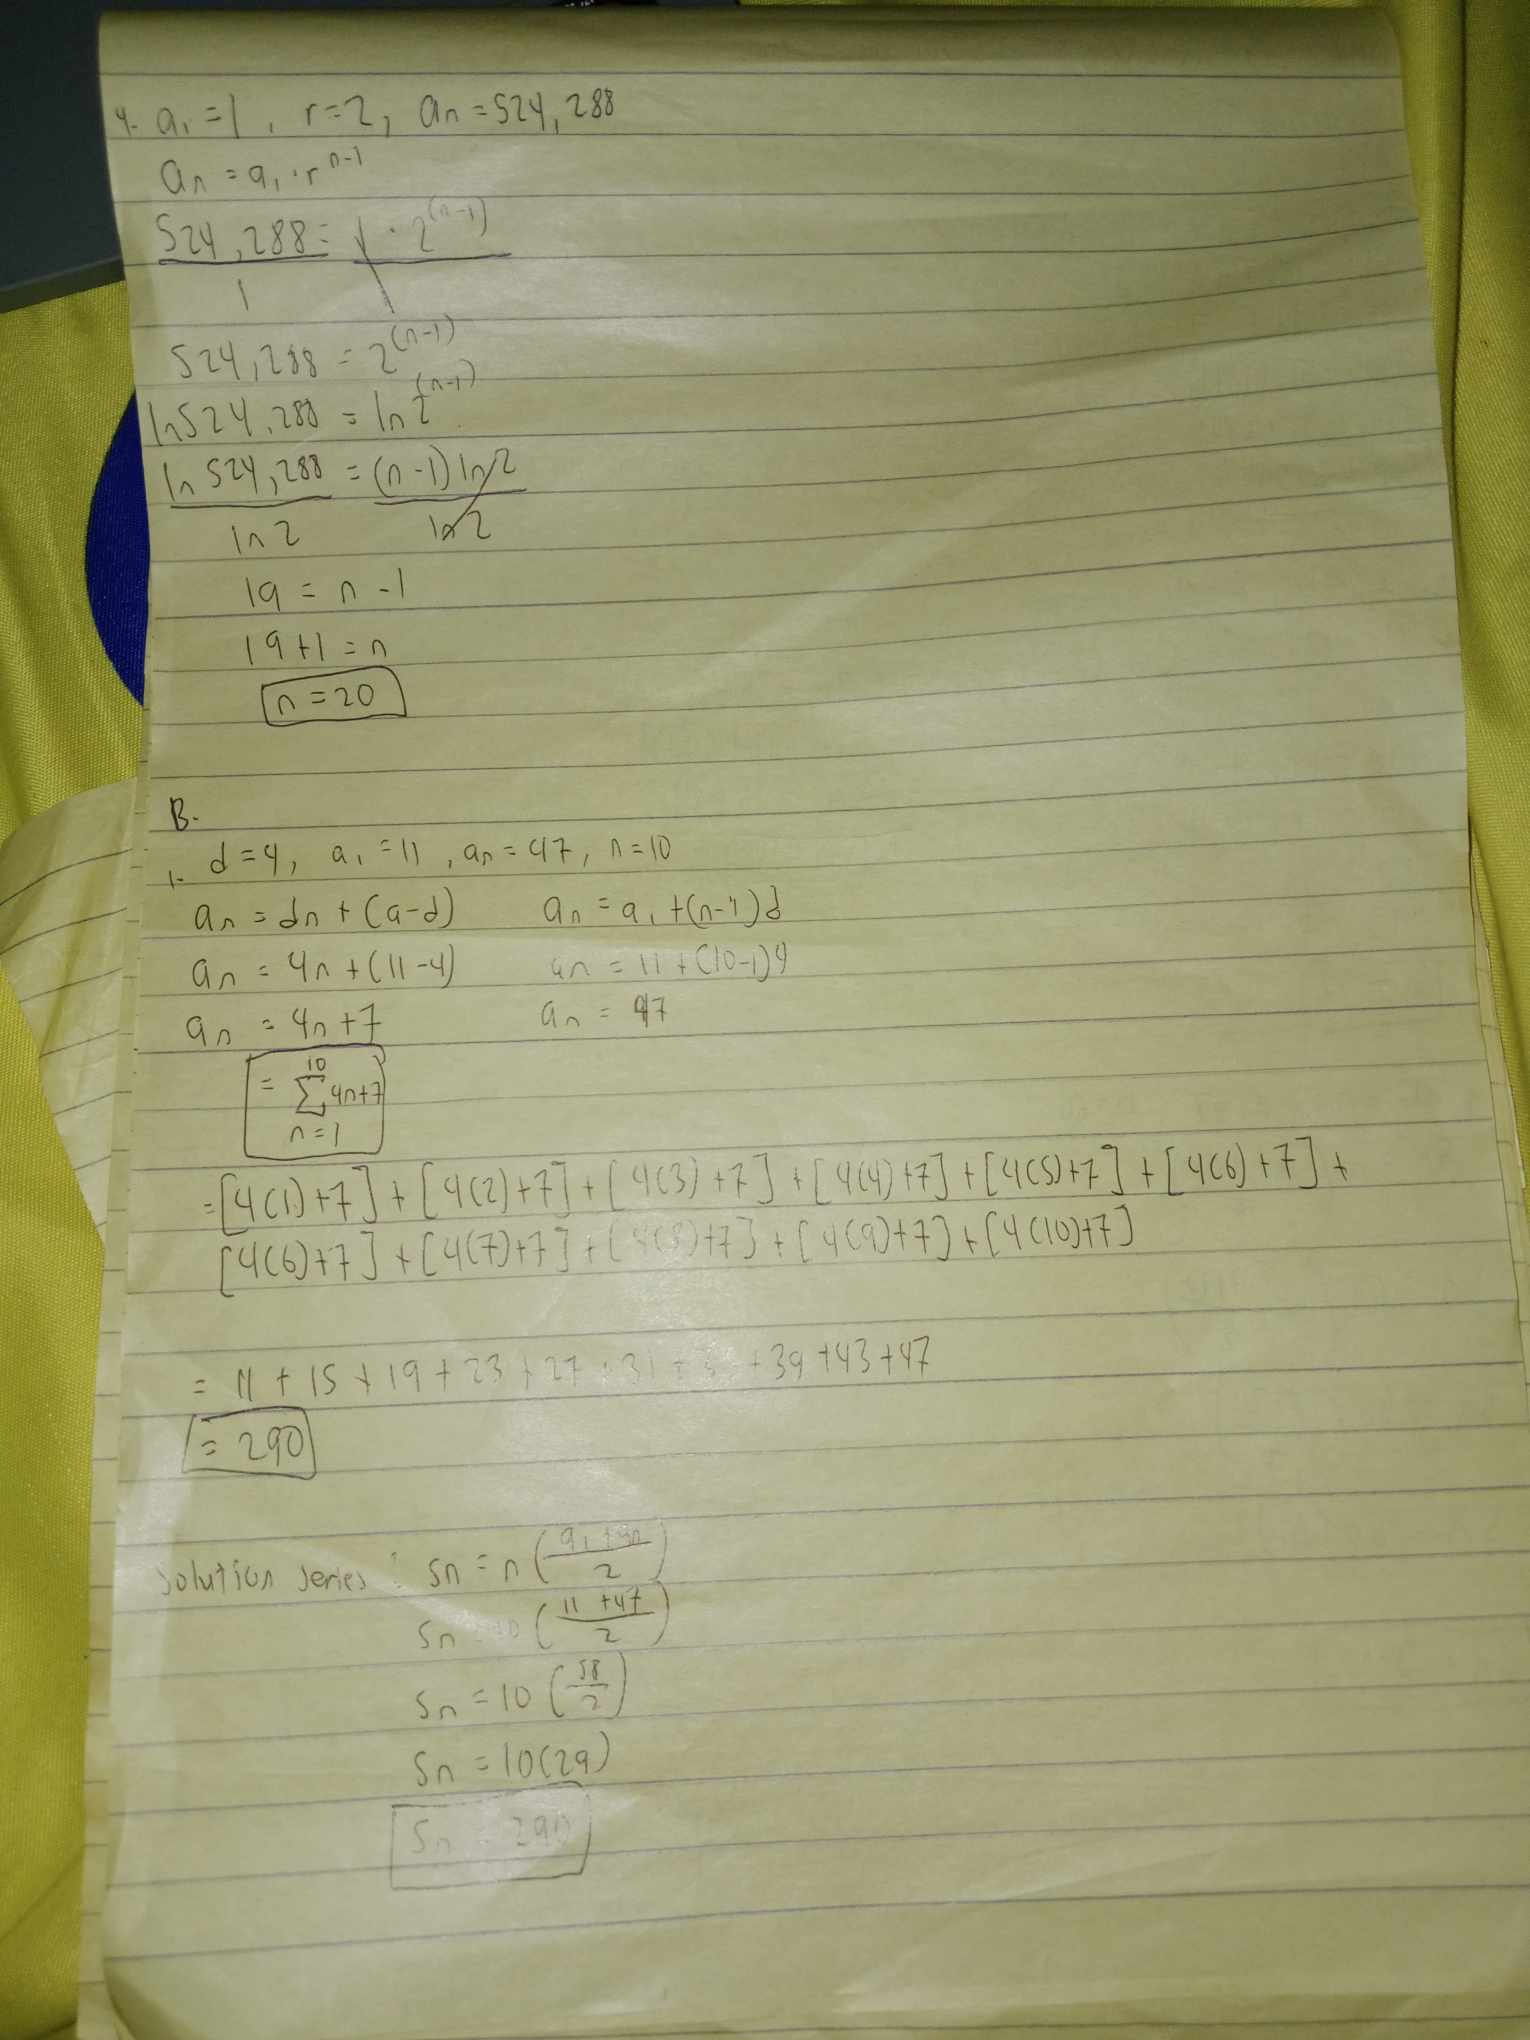 4. a₁ = 1, r = 2, aₙ = 524,288
aₙ = a₁ · r^(n-1)
524,288 = 1 · 2^(n-1)
1 1
524,288 = 2^(n-1)
ln 524,288 = ln 2^(n-1)
ln 524,288 = (n-1) ln 2
ln 2 ln 2
19 = n - 1
19 + 1 = n
n = 20
B.
1. d = 4, a₁ = 11, aₙ = 47, n = 10
aₙ = dn + (a-d) aₙ = a₁ + (n-1)d
aₙ = 4n + (11-4) aₙ = 11 + (10-1)4
aₙ = 4n + 7 aₙ = 47
10
= Σ 4n+7
n=1
= [4(1)+7] + [4(2)+7] + [4(3)+7] + [4(4)+7] + [4(5)+7] + [4(6)+7] +
[4(6)+7] + [4(7)+7] + [4(8)+7] + [4(9)+7] + [4(10)+7]
= 11 + 15 + 19 + 23 + 27 + 31 + 3 + 39 + 43 + 47
= 290
Solution series : Sn = n (a₁ + an / 2)
Sn = 10 (11 + 47 / 2)
Sn = 10 (58 / 2)
Sn = 10(29)
Sn = 290